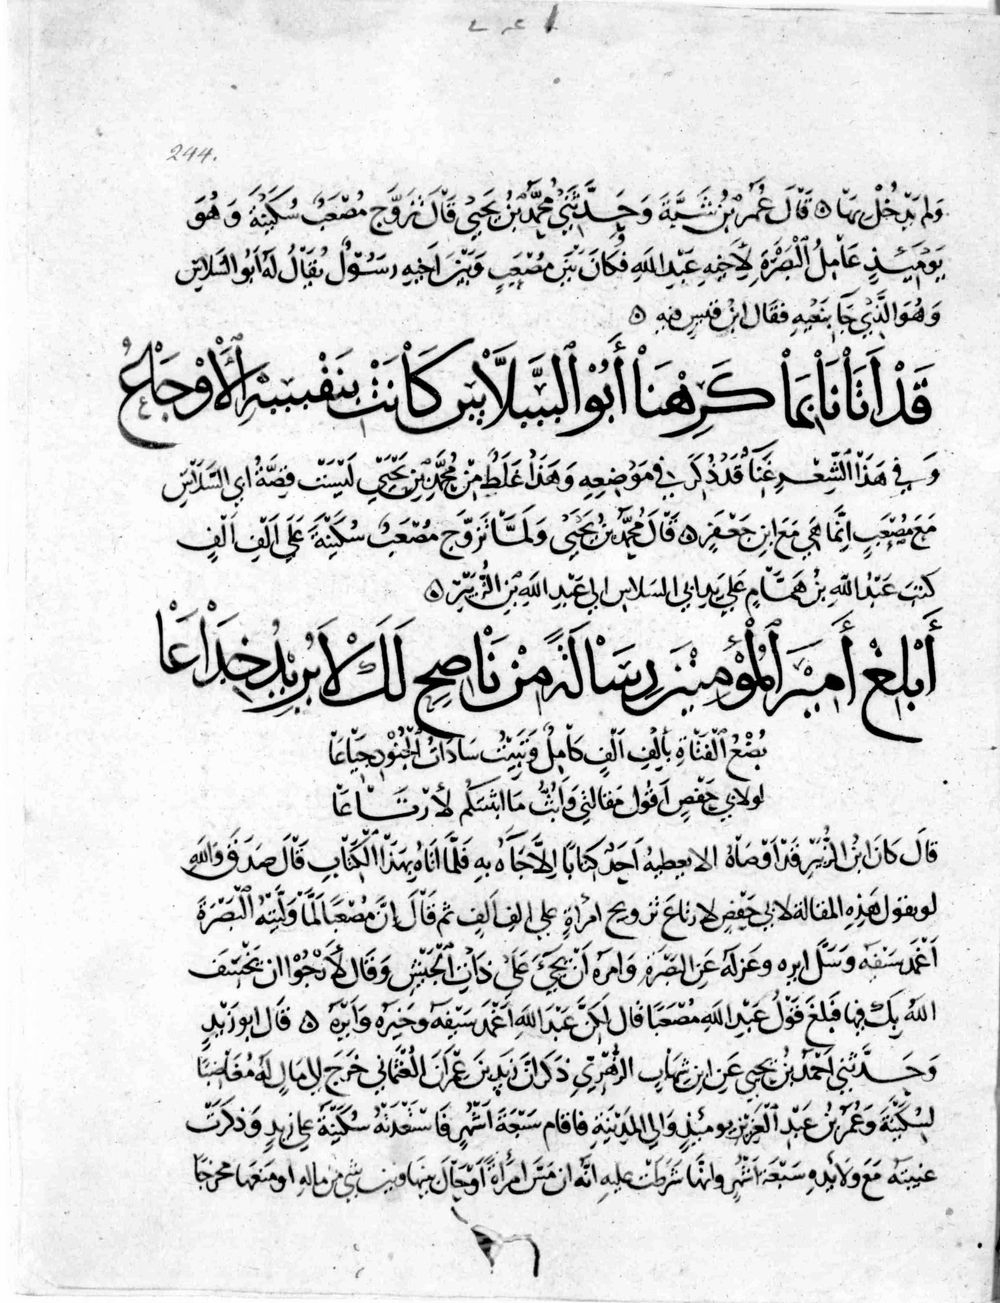 244.
وَلم يَدخُلْ بهَا ٥ قَالَ عُمَر بْنُ شَبَّةَ وَحَدَّثَنِي مُحمَّد بْنُ يَحيَى قَالَ تزَوَّج مُصْعَبٌ سُكَيْنَةَ وَهُوَ
يَوْمَئِذٍ عَامِلُ الْبَصْرَةِ لِأَخِيهِ عَبْدِ اللهِ فكَانَ بَيْن مُصْعَبٍ وَبَيْنَ اَخيهِ رسُولٌ يُقَالُ لَهُ اَبُو السَّلاسِ
وَهُوَ الَّذِي جَا بِنَعْيهِ فقَال ابْن قَيسٍ فيهِ ٥
قَدْ اَتَانَا بِمَا كَرِهْنَا أَبُو السَّلَّاسِ كَانَتْ بِنَفْسِهِ الْأَوْجَاعُ
وَفي هَذَا الشِّعْرِ غَنَا قَدْ ذُكرَ في مَوْضِعِهِ وَهَذَا غَلَطٌ مِنْ مُحمَّدِ بْنِ يَحْيَى لَيْسَتْ قِصَّةُ ابي السَّلاسِ
مَعَ مُصْعَبٍ اِنَّمَا هِيَ مَعَ ابنِ جَعْفَرٍ ٥ قَالَ مُحمَّد بنُ يَحْيَى وَلَمَّا تزَوَّج مُصْعَبٌ سُكَيْنَةَ عَلَى اَلْفِ اَلْفٍ
كتبَ عَبْدُ اللهِ بْنُ هَمَّامٍ عَلى يد ابي السلاس الى عَبْدِ اللهِ بْنِ الزُّبَيْرِ ٥
أَبْلِغْ أَمِيرَ الْمُؤْمِنِينَ رِسَالَةً مِنْ نَاصِحٍ لَكَ لَا يُرِيدُ خِدَاعَا
بُضْعُ الْفَتَاةِ بِأَلْفِ اَلْفٍ كَامِلٍ وَتَبِيتُ سَادَاتُ الْجُنُودِ جِيَاعَا
لو لابي حَفْصٍ اَقُول مَقالتِي وَاَبُثُّ مَا ابثثتكُم لأرْتَاعَا
قَال كَان ابْنُ الزُّبَيْرِ قَدْ اَوْصَاهُ الا يعطيهُ اَحدٌ كتَابًا اِلاَّ جَآءَهُ بهِ فَلَمَّا اتَاهُ بهَذَا الْكِتَابِ قَالَ صَدَقَ وَاللهِ
لو يقول هَذِهِ المقَالة لابِي حَفْصٍ لارتَاعَ تزويج امرأةٍ على الف الفٍ ثم قَالَ اِنَّ مُصْعَبًا لَمَّا وَلَّيْتُهُ الْبَصْرَةَ
اَغْمَدَ سَيْفَهُ وَسَلَّ ايره وعَزلهُ عَنِ البَصْرَةِ وَامرهُ اَنْ يَجِيَ عَلَى ذاتِ الْجَيْشِ وَقَال لأَرْجُوا ان يَخْسِفَ
اللهُ بِكَ فيها فَبلَغَ قَوْلُ عَبْدِ اللهِ مُصْعَبًا فقال لكِنَّ عَبْدَ اللهِ اَغْمَدَ سَيْفَهُ وَخَيرَهُ وَايرَهُ ٥ قَال ابُو زَيْدٍ
وَحَدَّثَنِي مُحَمَّدُ بْنُ يَحيى عَنِ ابنِ شِهَابٍ الزُّهْرِيّ ذكرَ اَنَّ زَيْدَ بْنَ عَمْرِو الْعُثْمَانِي خَرَج الى مَالٍ لَهُ مُغَاضِبًا
لِسُكَيْنَةَ وَعُمَر بنُ عَبْدِ الْعَزيزِ يومَئِذٍ وَالي الْمَدِينَةِ فاقام سَبْعَةَ اَشْهُرٍ فَاسْتَعْدَتْهُ سُكَيْنَةُ عَلى زيدٍ وَذكَرَتْ
غيبتَهُ مَعَ وَلائِدِهِ سَبْعَة اَشْهُرٍ وانهَا شرَطَت عليهِ انَّهُ ان مَسَّ امرأَةً اَوْ حَالَ بينهَا وبين شَيءٍ من ماله او منعهَا مخرجًا